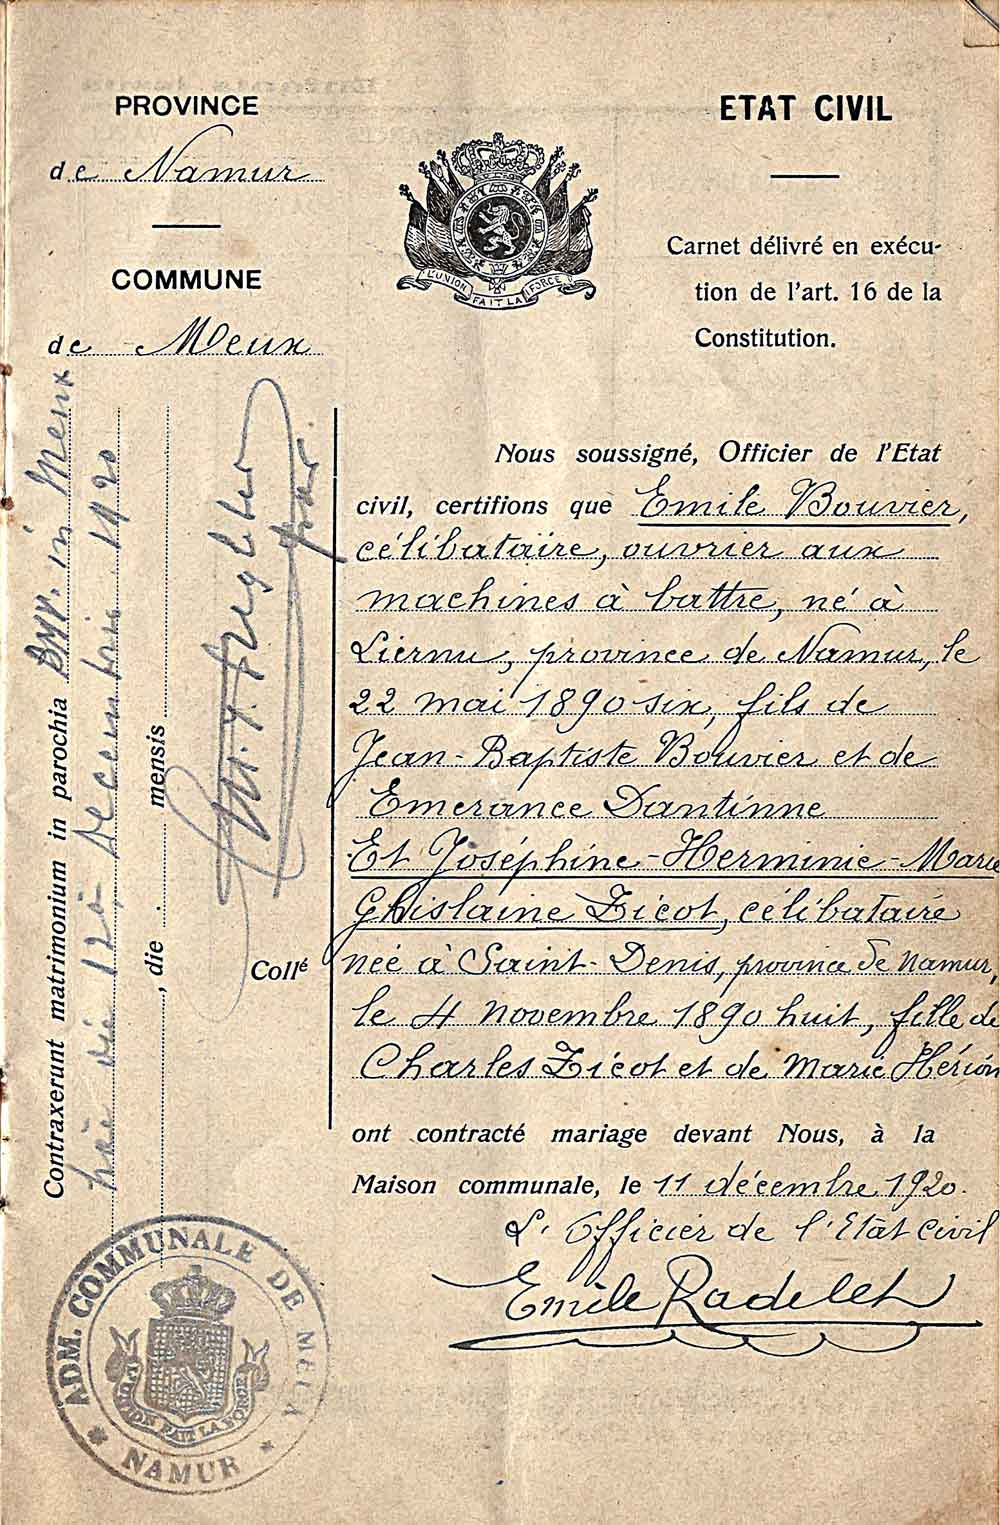 PROVINCE
de Namur
COMMUNE
de Meux
ETAT CIVIL
Carnet délivré en exécu-
tion de l'art. 16 de la
Constitution.
L'UNION FAIT LA FORCE
Nous soussigné, Officier de l'Etat
civil, certifions que Emile Bouvier,
célibataire, ouvrier aux
machines à battre, né à
Liernu, province de Namur, le
22 mai 1890 six, fils de
Jean-Baptiste Bouvier et de
Emerance Dantinne
Et Joséphine-Herminie-Marie
Ghislaine Zicot, célibataire
née à Saint-Denis, province de Namur,
le 4 novembre 1890 huit, fille de
Charles Zicot et de Marie Hérion
ont contracté mariage devant Nous, à la
Maison communale, le 11 décembre 1920.
L'Officier de l'Etat civil
Emile Radelet
Contraxerunt matrimonium in parochia in Meux
hac die 12a decembris 1920
, die mensis
Collé
ADM. COMMUNALE DE MEUX
L'UNION FAIT LA FORCE
* NAMUR *